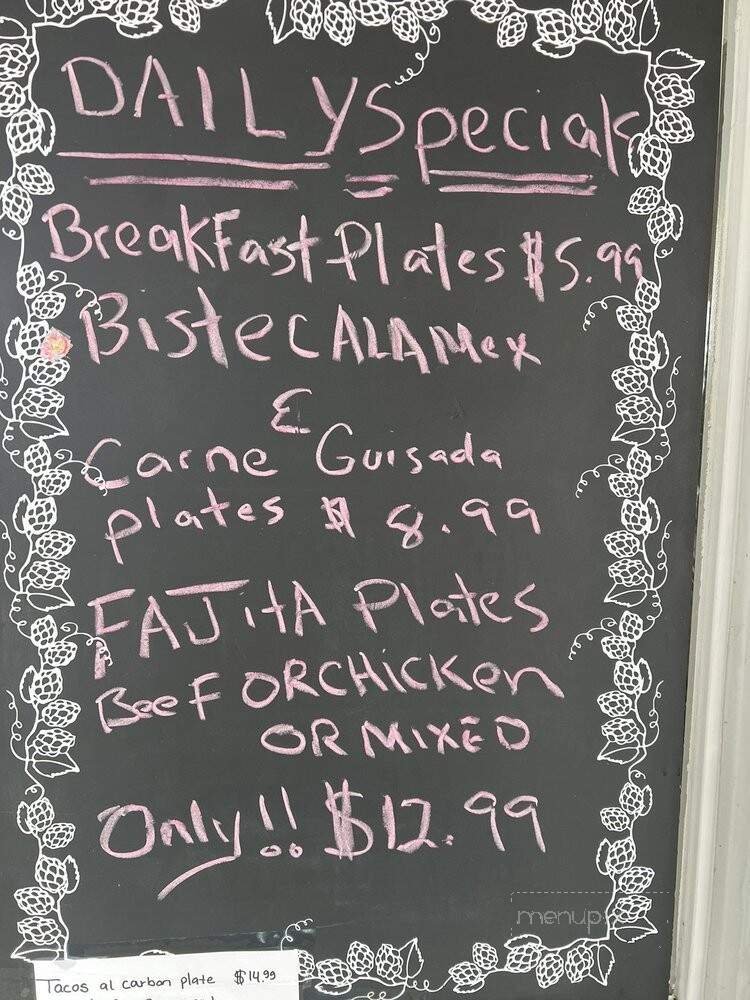 DAILY Specials
BreakFast Plates $5.99
Bistec ALA Mex
&
Carne Guisada
plates $8.99
FAJitA Plates
Beef OR CHicken
OR MIXED
Only!! $12.99
menup
Tacos al carbon plate $14.99